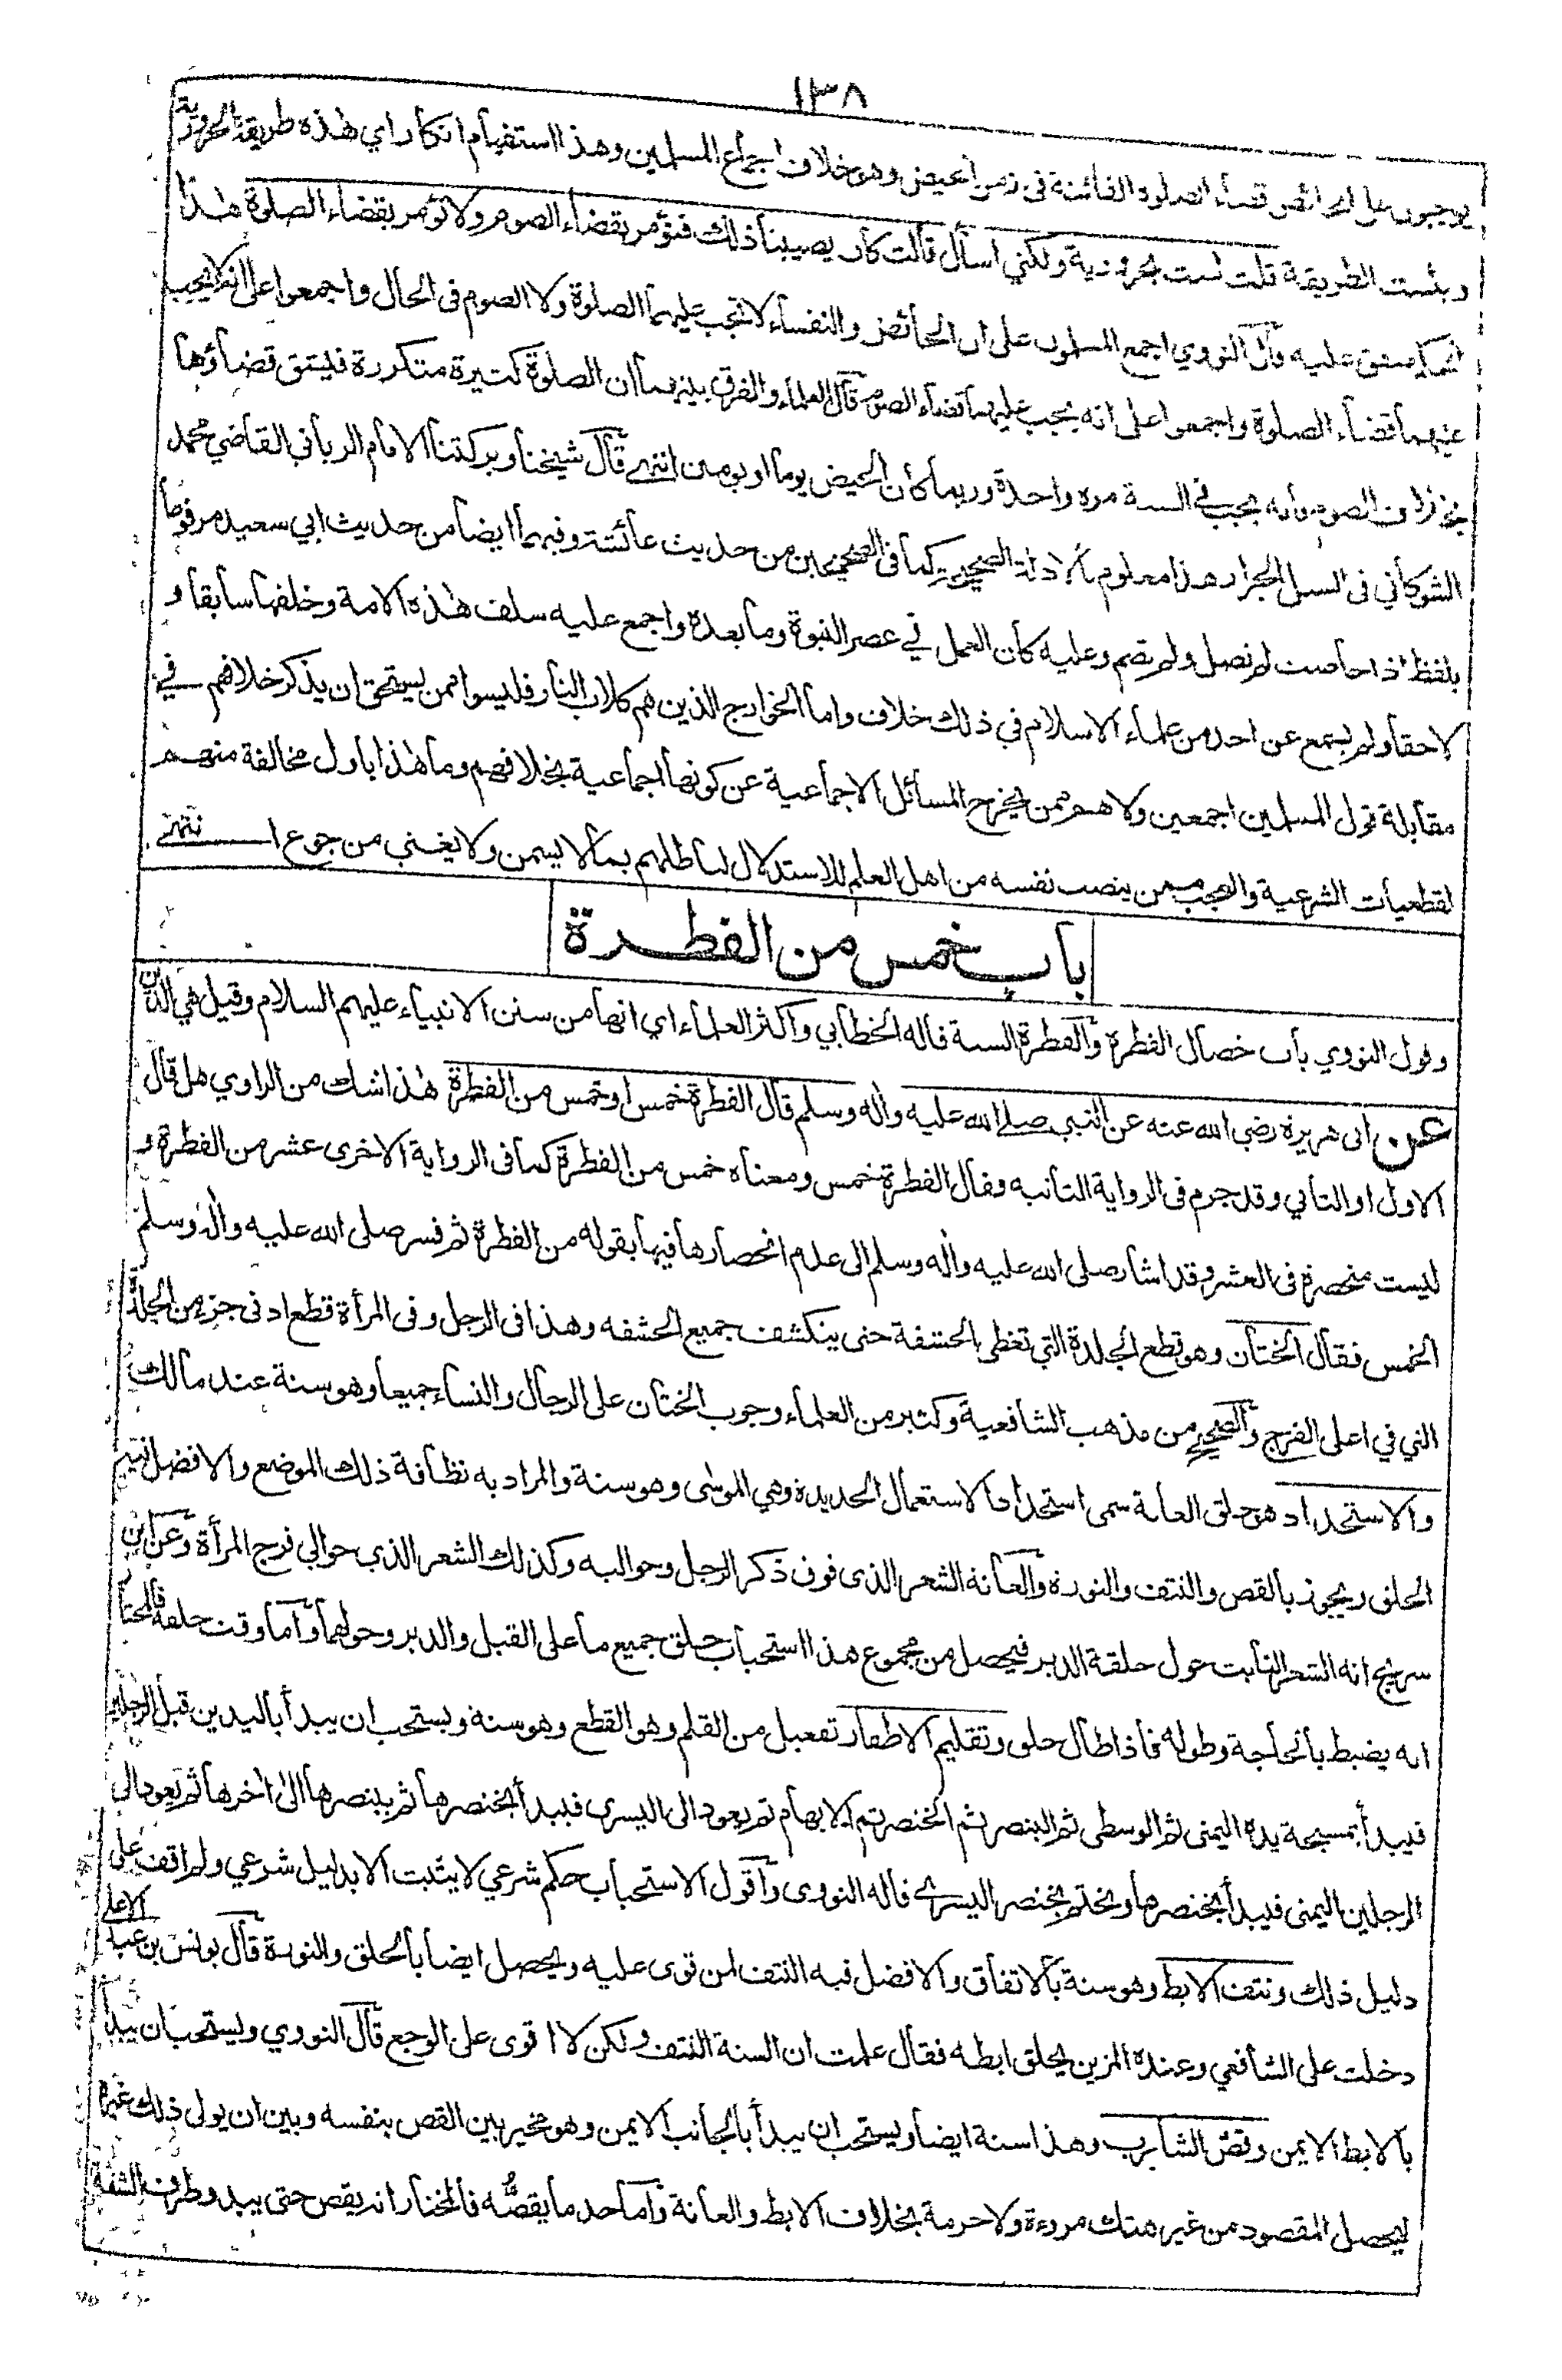 ١٣٨
يوجبون على الحائض قضاء الصلوة الفائتة في زمن الحيض وهو خلاف اجماع المسلمين وهذا استفهام انكار اي هذه طريقة الحرورية
وبئست الطريقة قلت لست بحرورية ولكني اسأل قالت كان يصيبنا ذلك فنؤمر بقضاء الصوم ولا نؤمر بقضاء الصلوة هذا
متفق عليه قال النووي اجمع المسلمون على ان الحائض والنفساء لا تجب عليهما الصلوة ولا الصوم في الحال واجمعوا على انه لا يجب
عليهما قضاء الصلوة واجمعوا على انه يجب عليهما قضاء الصوم قال العلماء والفرق بينهما ان الصلوة كثيرة متكررة فليشق قضاؤها
بخلاف الصوم فانه يجب في السنة مرة واحدة وربما كان الحيض يوما او يومين انتهى قال شيخنا وبركتنا الامام الرباني القاضي محمد
الشوكاني في السيل الجرار هذا معلوم بالادلة الصحيحة كما في الصحيحين من حديث عائشة وفيهما ايضا من حديث ابي سعيد مرفوعا
بلفظ اذا حاضت لم تصل ولم تصم وعليه كان العمل في عصر النبوة وما بعده واجمع عليه سلف هذه الامة وخلفها سابقا و
لاحقا ولم يسمع عن احد من علماء الاسلام في ذلك خلاف واما الخوارج الذين هم كلاب النار فليسوا ممن يستحق ان يذكر خلافهم في
مقابلة قول المسلمين اجمعين ولا هم ممن يخرج المسائل الاجماعية عن كونها اجماعية بخلافهم وما هذا باول مخالفة منهم
لقطعيات الشرعية والعجب ممن ينصب نفسه من اهل العلم للاستدلال لباطلهم بما لا يسمن ولا يغني من جوع انتهى
باب خمس من الفطرة
وقول النووي باب خصال الفطرة والفطرة السنة قاله الخطابي واكثر العلماء اي انها من سنن الانبياء عليهم السلام وقيل هي الدين
عن ابي هريرة رضي الله عنه عن النبي صلى الله عليه واله وسلم قال الفطرة خمس او خمس من الفطرة هذا شك من الراوي هل قال
الاول او الثاني وقد جزم في الرواية الثانية وقال الفطرة خمس ومعناه خمس من الفطرة كما في الرواية الاخرى عشر من الفطرة و
ليست منحصرة في العشر وقد اشار صلى الله عليه واله وسلم الى عدم انحصارها فيها بقوله من الفطرة ثم فسر صلى الله عليه واله وسلم
الخمس فقال الختان وهو قطع الجلدة التي تغطي الحشفة حتى ينكشف جميع الحشفة وهذا في الرجل وفي المرأة قطع ادنى جزء من الجلدة
التي في اعلى الفرج والصحيح من مذهب الشافعية وكثير من العلماء وجوب الختان على الرجال والنساء جميعا وهو سنة عند مالك
والاستحداد هو حلق العانة سمى استحدادا لاستعمال الحديدة وهي الموسى وهو سنة والمراد به نظافة ذلك الموضع والافضل فيه
الحلق ويجوز بالقص والنتف والنورة والعانة الشعر الذي فوق ذكر الرجل وحواليه وكذلك الشعر الذي حوالي فرج المرأة وعن ابن
سريج انه الشعر النابت حول حلقة الدبر فيحصل من مجموع هذا استحباب حلق جميع ما على القبل والدبر وحولهما واما وقت حلقه فالمختار
انه يضبط بالحاجة وطوله فاذا طال حلق وتقليم الاظفار تفعيل من القلم وهو القطع وهو سنة ويستحب ان يبدأ باليدين قبل الرجلين
فيبدأ بمسبحة يده اليمنى ثم الوسطى ثم البنصر ثم الخنصر ثم الابهام ثم يعود الى اليسرى فيبدأ بخنصرها ثم ببنصرها الى اخرها ثم يعود الى
الرجلين اليمنى فيبدأ بخنصرها ويختم بخنصر اليسرى قاله النووي واقول الاستحباب حكم شرعي لا يثبت الا بدليل شرعي ولم اقف على
دليل ذلك ونتف الابط وهو سنة بالاتفاق والافضل فيه النتف لمن قوى عليه ويحصل ايضا بالحلق والنورة قال يونس بن عبد الاعلى
دخلت على الشافعي وعنده المزين يحلق ابطه فقال علمت ان السنة النتف ولكن لا اقوى على الوجع قال النووي ويستحب ان يبدأ
بالابط الايمن وقص الشارب وهذا سنة ايضا ويستحب ان يبدأ بالجانب الايمن وهو مخير بين القص بنفسه وبين ان يولي ذلك غيره
ليحصل المقصود من غير هتك مروءة ولا حرمة بخلاف الابط والعانة واما حد ما يقصه فالمختار انه يقص حتى يبدو طرف الشفة